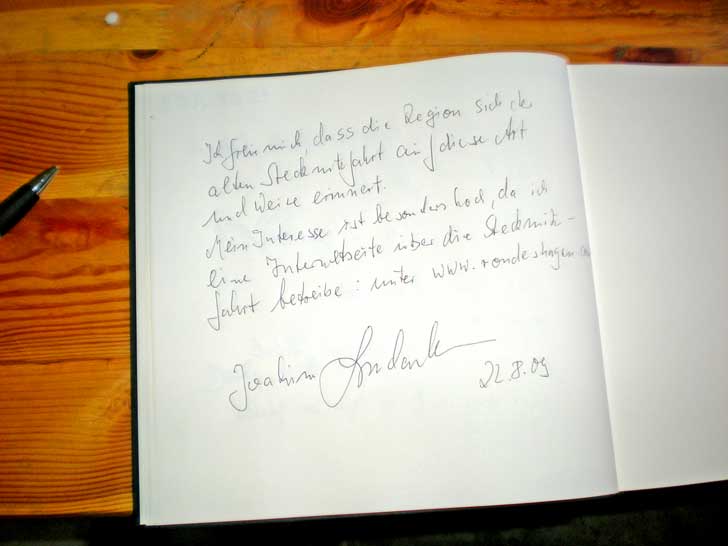 Ich freu mich, dass die Region sich der
alten Stecknitzfahrt auf diese Art
und Weise erinnert.
Mein Interesse ist besonders hoch, da ich
eine Internetseite über die Stecknitz-
fahrt betreibe: unter www.rondeshagen.de
Joachim
22.8.09